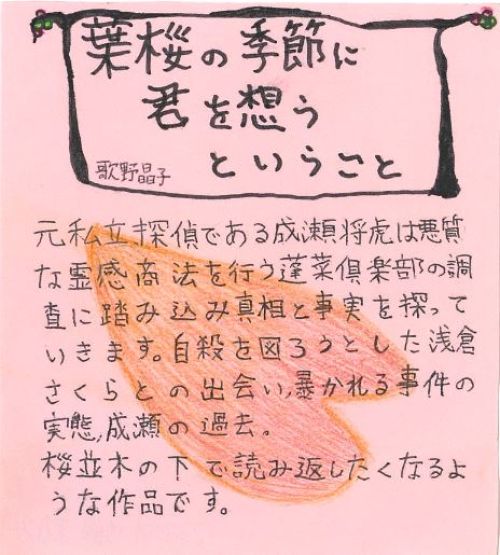 葉桜の季節に
君を想う
ということ
歌野晶子
元私立探偵である成瀬将虎は悪質
な霊感商法を行う蓬莱倶楽部の調
査に踏み込み真相と事実を探って
いきます。自殺を図ろうとした浅倉
さくらとの出会い,暴かれる事件の
実態,成瀬の過去。
桜並木の下で読み返したくなるよ
うな作品です。